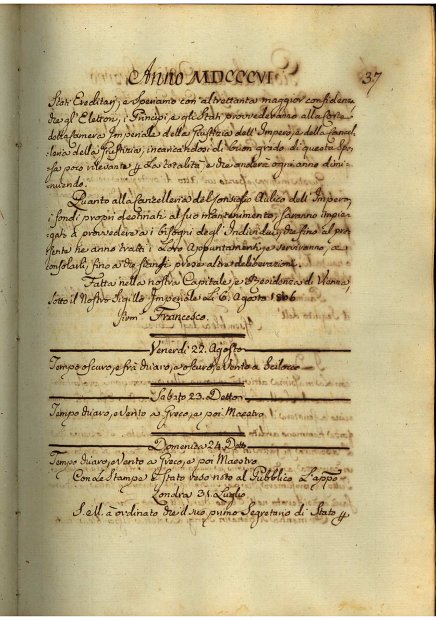 Anno MDCCCVI
37
Stati Ereditarj, e Speriamo con altrettanta maggior confidenza,
che gl'Elettori, i Principi, e gli Stati provvederanno alla sorte
della Camera Imperiale della Giustizia dell'Impero, e della Cancel,
leria della Giustizia, incaricandosi di buon grado di questa Spe,
sa poco rilevante p la totalità, e che anderà ogni anno dimi,
nuendo.
Quanto alla Cancelleria del Consiglio Aulico dell'Impero,
i fondi proprj destinati al suo mantenimento, saranno impie,
gati a provvedere a i bisogni degl'Individui, che fino al pre,
sente ne anno tratti i loro Appuntamenti, e serviranno, a
consolarli, fino a che siansi prese altre deliberazioni.
Fatta nella nostra Capitale, e Residenza di Vienna,
sotto il Nostro Sigillo Imperiale Li 6. Agosto 1806
Firm. Francesco.
Venerdì 22. Agosto
Tempo oscuro, e frà chiaro, e oscuro, e Vento a Scilocco
Sabato 23. Detto
Tempo chiaro, e Vento a Greco, e poi Maestro
Domenica 24. Dtto
Tempo chiaro, e Vento a Greco, e poi Maestro
Con le Stampe È Stato reso noto al Pubblico L'appo
Londra 31. Luglio
S. M. à ordinato che il suo primo Segretario di Stato p